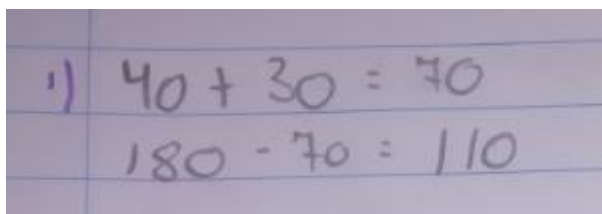 1) 40 + 30 = 70
180 - 70 = 110